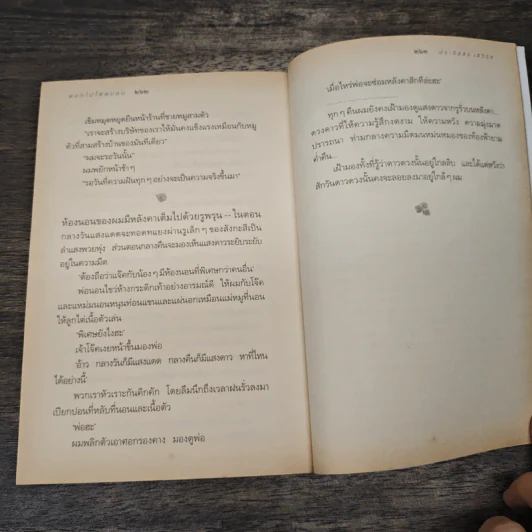 ดอกไม้ใต้ตะกอน ๒๖๒
เข็มหมุดหยุดยืนหน้าร้านที่ขายหมูสามตัว
"เราจะสร้างบริษัทของเราให้มันคงแข็งแรงเหมือนกับหมู
ตัวที่สามสร้างบ้านของมันทีเดียว"
"ผมจะรอวันนั้น"
ผมพยักหน้าช้าๆ
"รอวันที่ความฝันทุกๆ อย่างจะเป็นความจริงขึ้นมา"
ห้องนอนของผมมีหลังคาเต็มไปด้วยรูพรุน -- ในตอน
กลางวันแสงแดดจะทอดทแยงผ่านรูเล็กๆ ของสังกะสีเป็น
ลำแสงพวยพุ่ง ส่วนตอนกลางคืนจะมองเห็นแสงดาวระยิบระยับ
อยู่ในความมืด
'ต้องถือว่าแจ๊คกับน้องๆ มีห้องนอนที่พิเศษกว่าคนอื่น'
พ่อนอนไขว่ห้างกระดิกเท้าอย่างอารมณ์ดี ให้ผมกับโจ๊ค
และแหม่มนอนหนุนท่อนแขนและแผ่นอกเหมือนแม่หมูที่นอน
ให้ลูกไต่เนื้อตัวเล่น
'พิเศษยังไงฮะ'
เจ้าโจ๊คเงยหน้าขึ้นมองพ่อ
'อ้าว กลางวันก็มีแสงแดด กลางคืนก็มีแสงดาว หาที่ไหน
ได้อย่างนี้'
พวกเราหัวเราะกันคิกคัก โดยลืมนึกถึงเวลาฝนรั่วลงมา
เปียกปอนที่หลับที่นอนและเนื้อตัว
'พ่อฮะ'
ผมพลิกตัวเอาศอกรองคาง มองดูพ่อ
๒๖๓ ประภัสสร เสวิกุล
'เมื่อไหร่พ่อจะซ่อมหลังคาสักทีล่ะฮะ'
ทุกๆ คืนผมยังคงเฝ้ามองดูแสงดาวจากรูรั่วบนหลังคา...
ดวงดาวที่ให้ความรู้สึกงดงาม ให้ความหวัง ความมุ่งมาด
ปรารถนา ท่ามกลางความมืดมนหม่นหมองของท้องฟ้ายาม
ค่ำคืน...
เฝ้ามองทั้งที่รู้ว่าดาวดวงนั้นอยู่ไกลลิบ และได้แต่หวังว่า
สักวันดาวดวงนั้นคงจะลอยลงมาอยู่ใกล้ๆ ผม